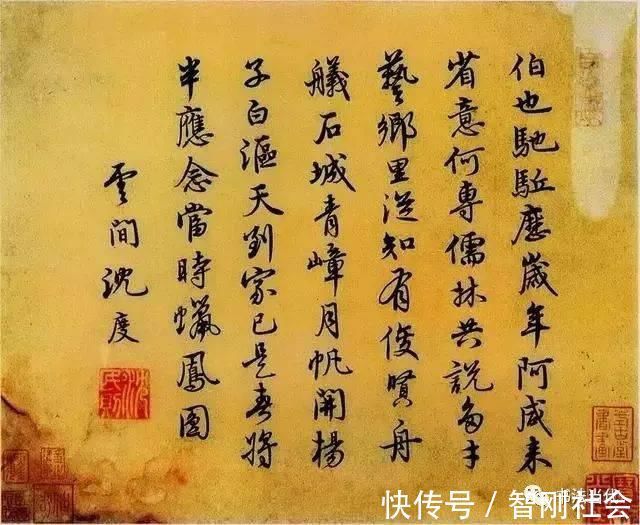 伯也馳駈歷歲年阿咸来
省意何專儒林共說多才
藝鄉里從知有俊賢舟
艤石城青嶂月帆開楊
子白漚天到家已是春將
半應念當時蠟鳳圓
雲間沈度
沈民則
书法当代
快传号／智刚社会